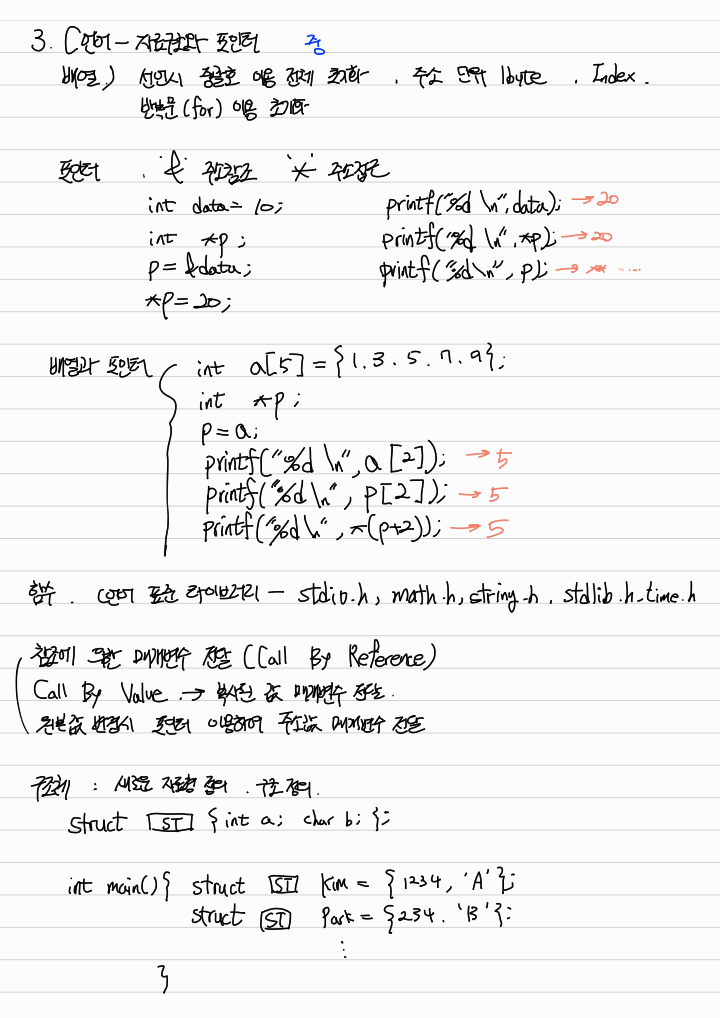 3. C언어 - 자료구조와 포인터 중
배열) 선언시 중괄호 이용 전체 초기화 . 주소 단위 1byte . Index.
반복문(for) 이용 초기화
포인터 . '&' 주소참조 '*' 주소접근
int data = 10; printf("%d \n", data); → 20
int *p ; printf("%d \n", *p); → 20
p = &data; printf("%d\n", p); → ** .....
*p = 20;
배열과 포인터 int a[5] = {1. 3. 5. 7. 9};
int *p ;
p = a;
printf("%d \n", a [2]); → 5
printf("%d\n", p[2]); → 5
printf("%d\n", *(p+2)); → 5
함수 . C언어 표준 라이브러리 - stdio.h, math.h, string.h. stdlib.h. time.h
참조에 의한 매개변수 전달 (Call By Reference)
Call By Value → 복사된 값 매개변수 전달.
원본값 변경시 포인터 이용하여 주소값 매개변수 전달
구조체 : 새로운 자료형 정의 . 구조 정의.
struct ST { int a; char b; };
int main() { struct ST Kim = {1234, 'A'};
struct ST Park = {234. 'B'};
⋮
}